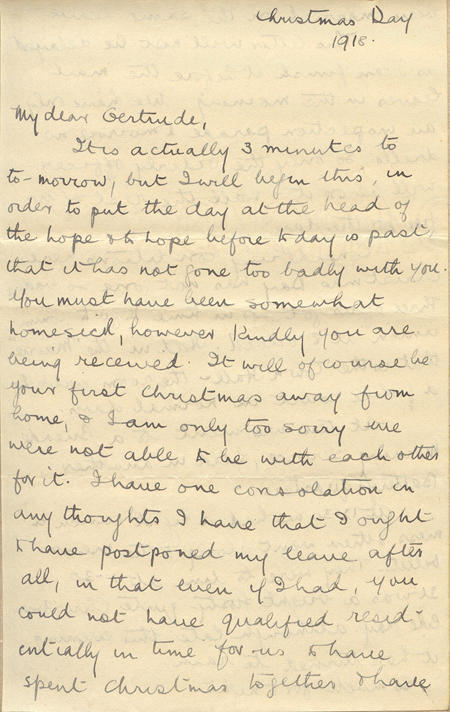 Christmas Day
1918.
My dear Gertrude,
It is actually 3 minutes to
to-morrow, but I will begin this, in
order to put the day at the head of
the hope & to hope before to day is past,
that it has not gone too badly with you.
You must have been somewhat
homesick, however kindly you are
being received. It will of course be
your first Christmas away from
home, & I am only too sorry we
were not able to be with each other
for it. I have one consolation in
any thoughts I have that I ought
to have postponed my leave after
all, in that even if I had, you
could not have qualified resid-
entially in time for us to have
spent Christmas together & have